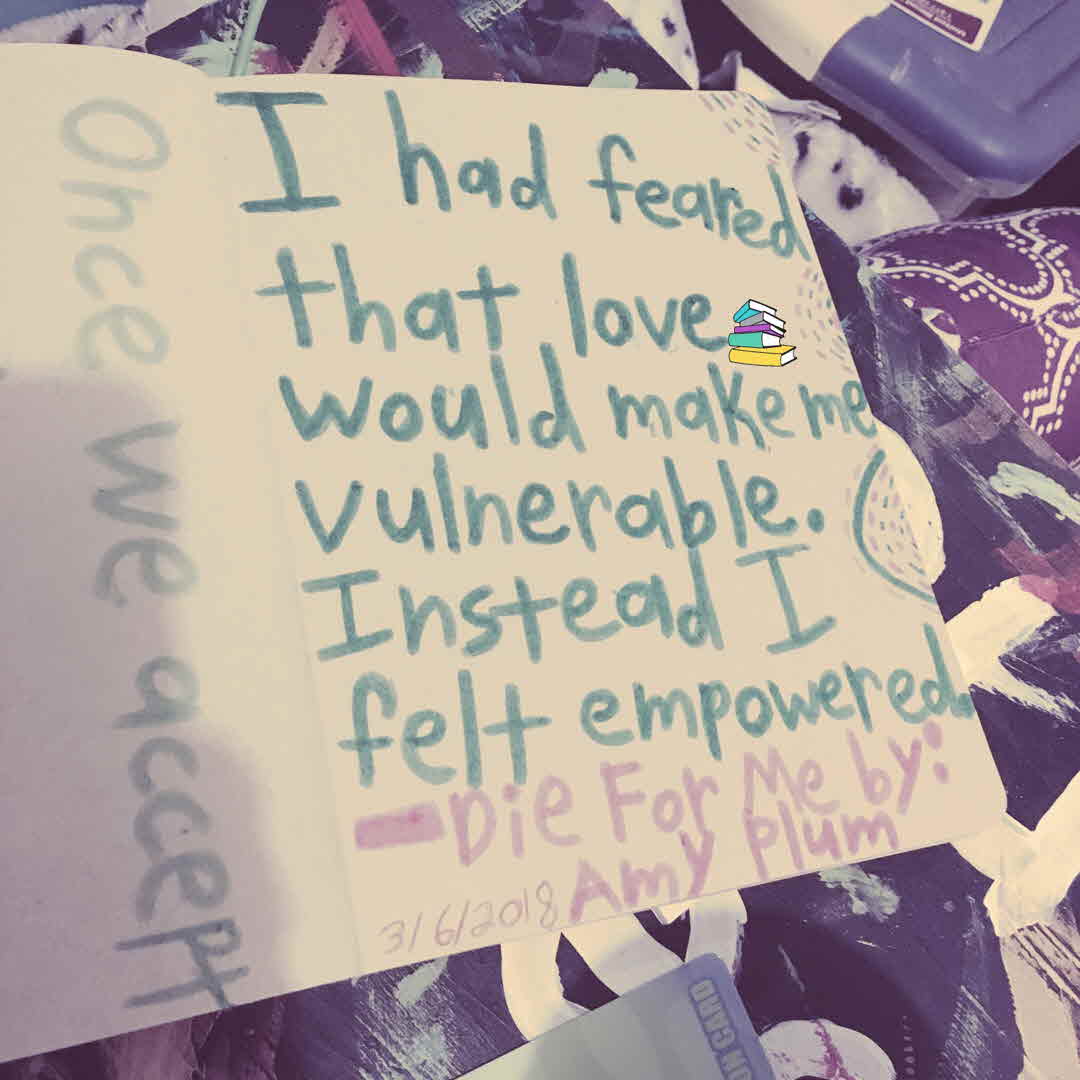 Once we accept
I had feared
that love
would make me
vulnerable.
Instead I
felt empowered.
—Die For Me by:
Amy Plum
3/6/2018
CARD